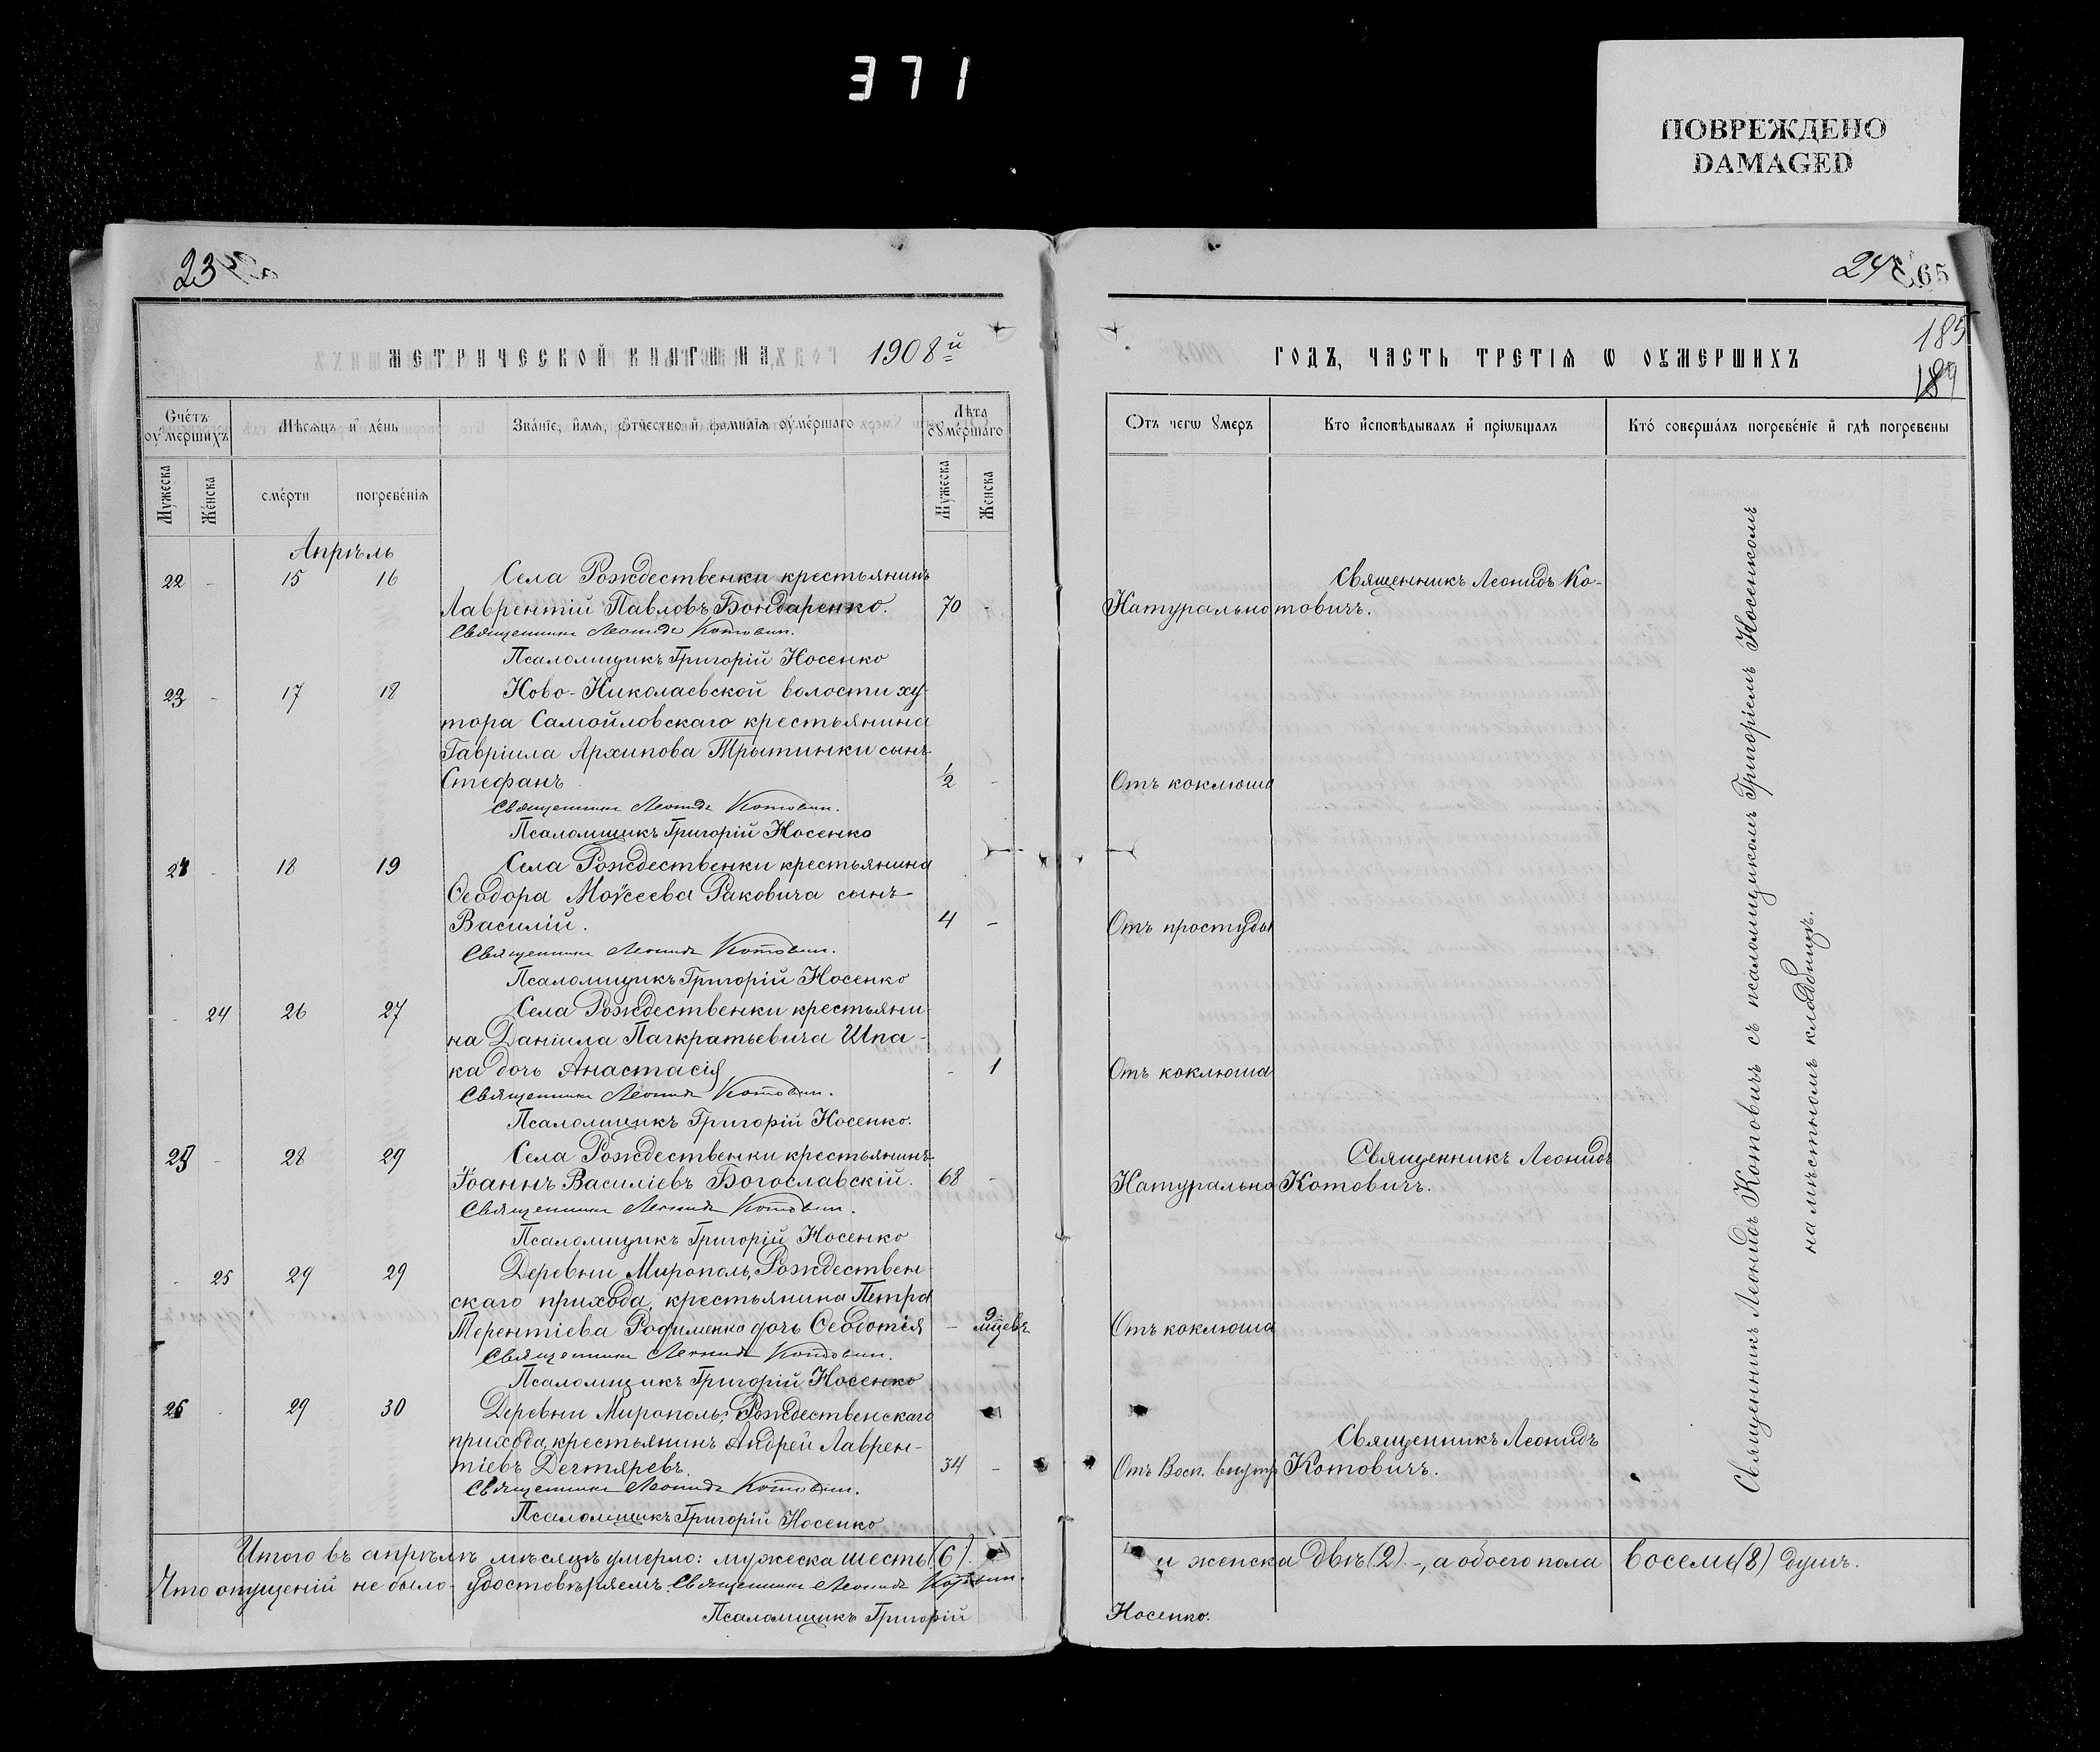 371
ПОВРЕЖДЕНО
DAMAGED
23
МЕТРИЧЕСКОЙ КНИГИ НА 1908й
Сче́тъ оу҆мершихъ
Мѣсяцъ и҆ де́нь
Зва́нїе, и҆́мѧ, ѻ҆́тчество и҆ фамилїѧ оу҆ме́ршаго
Лѣта оу҆ме́ршаго
Мужеска
Же́нска
сме́рти
погребе́нїѧ
Мужеска
Же́нска
Апрѣль
22 - 15 16 Села Рождественки крестьянинъ
Лаврентій Павловъ Бондаренко. 70 -
Священникъ Леонидъ Котовичъ.
Псаломщикъ Григорій Носенко
23 - 17 18 Ново-Николаевской волости ху-
тора Самойловскаго крестьянина
Гавріила Архипова Трытинки сынъ
Стефанъ 1/2 -
Священникъ Леонидъ Котовичъ.
Псаломщикъ Григорій Носенко
24 - 18 19 Села Рождественки крестьянина
Ѳеодора Моѵсеева Раковича сынъ
Василій. 4 -
Священникъ Леонидъ Котовичъ.
Псаломщикъ Григорій Носенко
- 24 26 27 Села Рождественки крестьяни-
на Даніила Панкратьевича Шпа-
ка дочь Анастасія - 1
Священникъ Леонидъ Котовичъ.
Псаломщикъ Григорій Носенко.
25 - 28 29 Села Рождественки крестьянинъ
Іоаннъ Василіевъ Богославскій. 68 -
Священникъ Леонидъ Котовичъ.
Псаломщикъ Григорій Носенко
- 25 29 29 Деревни Мирополь, Рождествен-
скаго прихода, крестьянина Петра
Терентіева Родименко дочь Ѳеодотія - 9 мцевъ
Священникъ Леонидъ Котовичъ.
Псаломщикъ Григорій Носенко
26 - 29 30 Деревни Мирополь, Рождественскаго
прихода, крестьянинъ Андрей Лаврен-
тіевъ Дегтяревъ. 34 -
Священникъ Леонидъ Котовичъ.
Псаломщикъ Григорій Носенко
Итого въ апрѣлѣ мѣсяцѣ умерло: мужеска шесть (6)
Что опущеній не было - удостовѣряемъ. Священникъ Леонидъ Котовичъ.
Псаломщикъ Григорій
24
365
185
189
ГОДЪ, ЧАСТЬ ТРЕТІѦ Ѡ ОУМЕРШИХЪ
Ѿъ чегѡ ᲂумеръ
Кто и҆сповѣдывалъ и҆ прїѡбщалъ
Кто́ соверша́лъ погребе́нїе и҆ гдѣ погребены
Священникъ Леонидъ Ко-
Натурально товичъ.
Отъ коклюша
Отъ простуды
Отъ коклюша
Священникъ Леонидъ
Натурально Котовичъ.
Отъ коклюша
Священникъ Леонидъ
Отъ Восп. внутр Котовичъ.
Священникъ Леонидъ Котовичъ съ псаломщикомъ Григоріемъ Носенкомъ
на мѣстномъ кладбищѣ.
и женска двѣ (2) -, а обоего пола восемь (8) душъ.
Носенко.